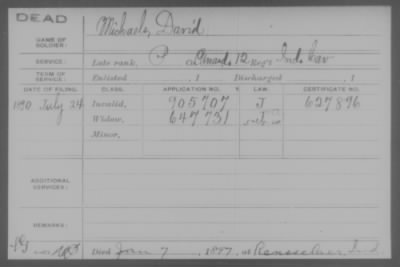 DEAD
NAME OF SOLDIER: Michaels, David
SERVICE: Late rank, P Co. 12 Reg't Ind. Cav
TERM OF SERVICE: Enlisted , 1 Discharged , 1
DATE OF FILING. CLASS. APPLICATION NO. LAW. CERTIFICATE NO.
1890 July 24 Invalid, 905707 J 627896
Widow, 647731
Minor,
ADDITIONAL SERVICES:
REMARKS:
Died Jan 7, 1897, at Rensselaer, Ind